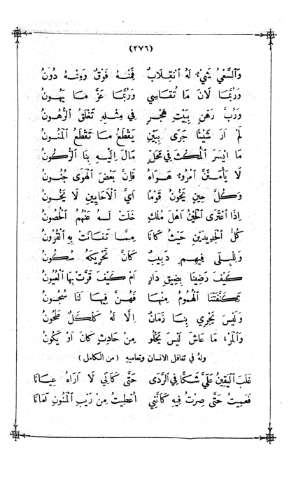 (٢٧٦)
وَالسَّعْيُ شَيْءٌ لَهُ انْقِلَابٌ فَمِنْهُ فَوْقٌ وَمِنْهُ دُونُ
وَرُبَّمَا لَانَ مَا تُقَاسِي وَرُبَّمَا عَزَّ مَا يَهُونُ
وَرُبَّ رَهْنٍ بِبَيْتِ هَجْرٍ فِي مِثْلِهِ تَغْلَقُ الرُّهُونُ
لَمْ أَرَ شَيْئًا جَرَى بِبَيْنٍ يَقْطَعُ مَا تَقْطَعُ الْمَنُونُ
مَا أَيْسَرَ الْمُكْثَ فِي مَحَلٍّ مَالَ إِلَيْهِ بِنَا الرُّكُونُ
لَا يَأْمَنَنَّ امْرُؤٌ هَوَاهُ فَإِنَّ بَعْضَ الْهَوَى جُنُونُ
وَكُلُّ حِينٍ يَخُونُ قَوْمًا أَيُّ الْأَحَايِينِ لَا يَخُونُ
إِذَا اعْتَرَى الْحَيْنُ أَهْلَ مُلْكٍ خَلَتْ لَهُ عَنْهُمُ الْحُصُونُ
كُلُّ الْجَدِيدَيْنِ حَيْثُ كَانَا مِمَّا تَفَانَتْ بِهِ الْقُرُونُ
وَلِلْبِلَى فِيهِمِ دَبِيبٌ كَأَنَّ تَحْرِيكَهُ سُكُونُ
كَيْفَ رَضِينَا بِضِيقِ دَارٍ أَمْ كَيْفَ قَرَّتْ بِهَا الْعُيُونُ
تَكَنَّفَتْنَا الْهُمُومُ مِنْهَا فَهُنَّ فِيهَا لَنَا سُجُونُ
وَلَيْسَ يَجْرِي بِنَا زَمَانٌ إِلَّا لَهُ كَلْكَلٌ طَحُونُ
وَالْمَرْءُ مَا عَاشَ لَيْسَ يَخْلُو مِنْ حَادِثٍ كَانَ أَوْ يَكُونُ
وله في تغافل الانسان وتعاميه (من الكامل)
غَلَبَ الْيَقِينُ عَلَيَّ شَكًّا فِي الرَّدَى حَتَّى كَأَنِّي لَا أَرَاهُ عِيَانَا
فَعَمِيتُ حَتَّى صِرْتُ فِيهِ كَأَنَّنِي أُعْطِيتُ مِنْ رَيْبِ الْمَنُونِ أَمَانَا